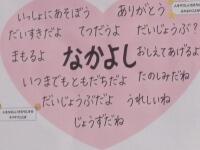 いっしょにあそぼう
ありがとう
だいすきだよ
てつだうよ
だいじょうぶ?
まもるよ
なかよし
おしえてあげるよ
いつまでもともだちだよ
たのしみだね
だいじょうぶだよ
うれしいね
じょうずだね